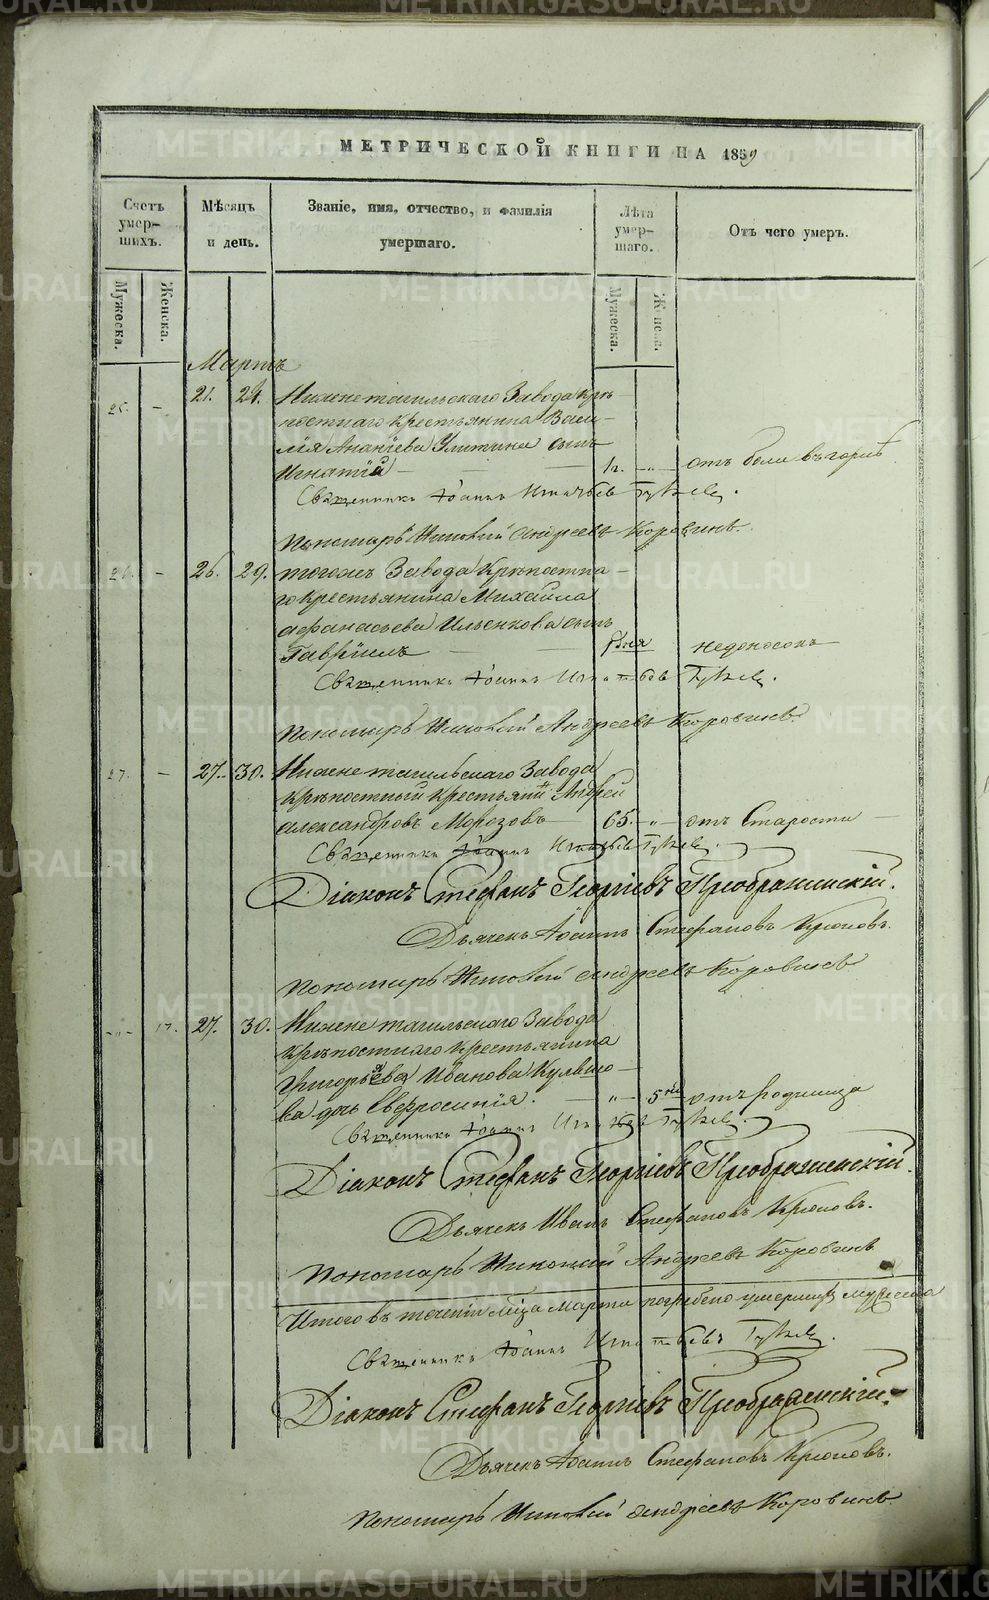 МЕТРИЧЕСКОЙ КНИГИ НА 1859
Счетъ умер-шихъ.
Мѣсяцъ и день.
Званіе, имя, отчество, и фамилія умершаго.
Лѣта умер-шаго.
Отъ чего умеръ.
Мужеска. Женска. Мужеска. Женска.
Мартъ
25. - 21. 24. Нижнетагильскаго Завода крѣ-
постнаго крестьянина Васи-
лія Ананіева Улитина сынъ
Игнатій 1/2. -"- отъ боли въ горлѣ
Священникъ Іоаннъ Игнатьевъ
Пономарь Николай Андреевъ Коровинъ.
26. - 26. 29. тогожъ Завода крѣпостна-
го крестьянина Михаила
Афанасьева Ильенкова сынъ
Гавріилъ дня недоносокъ
Священникъ Іоаннъ Игнатьевъ
Пономарь Николай Андреевъ Коровинъ
27. - 27. 30. Нижнетагильскаго Завода
крѣпостный крестьянинъ Андрей
Александровъ Морозовъ 65. -"- отъ Старости
Священникъ Іоаннъ Игнатьевъ
Діаконъ Стефанъ Георгіевъ Преображенскій.
Дьячекъ Іоаннъ Стефановъ Крюковъ.
Пономарь Николай Андреевъ Коровинъ
-"- 17. 27. 30. Нижнетагильскаго Завода
крѣпостнаго крестьянина
Григорьева Иванова
ва дочь Евфросинія. -"- 5 отъ родимца
Священникъ Іоаннъ Игнатьевъ
Діаконъ Стефанъ Георгіевъ Преображенскій.
Дьячекъ Иванъ Стефановъ Крюковъ.
Пономарь Николай Андреевъ Коровинъ
Итого въ теченіи мца Марта погребено умершихъ мужеска
Священникъ Іоаннъ Игнатьевъ
Діаконъ Стефанъ Георгіевъ Преображенскій.
Дьячекъ Іоаннъ Стефановъ Крюковъ.
Пономарь Николай Андреевъ Коровинъ
METRIKI.GASO-URAL.RU